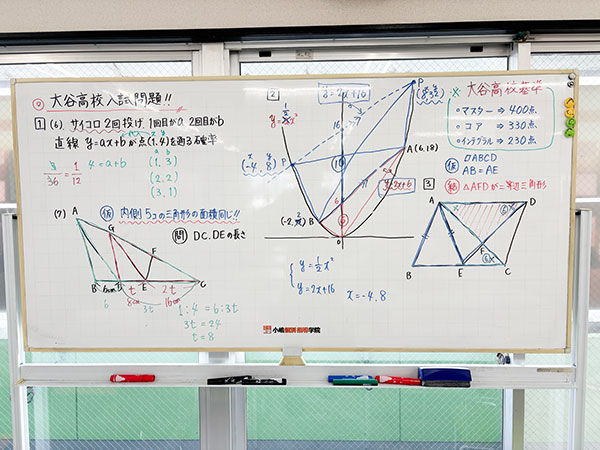 ◎ 大谷高校入試問題!!
1 (6). サイコロ2回投げ 1回目がa, 2回目がb
直線 y=ax+bが点(1,4)を通る確率
3/36 = 1/12
4=a+b
a b
(1, 3)
(2, 2)
(3, 1)
(7) 仮 内側5コの三角形の面積同じ!!
問 DC.DEの長さ
A
G
F
B
D
E
C
6cm
t
2t
8cm
16cm
6
3t
1:4=6:3t
3t=24
t=8
2
y=2x+16
y=1/2x²
P
(8, 32)
16
x y
(-4, 8)
P
A(6,18)
y=3x+6
6
B
(-2, 2)
0
{ y=1/2x²
y=2x+16
x=-4,8
※ 大谷高校基準
○マスター ⇒ 400点
○コア ⇒ 330点
○インテグラル ⇒ 230点
仮 ▱ABCD
AB=AE
3
結 △AFDが二等辺三角形
A
D
F
B
E
C
小嶋個別指導学院